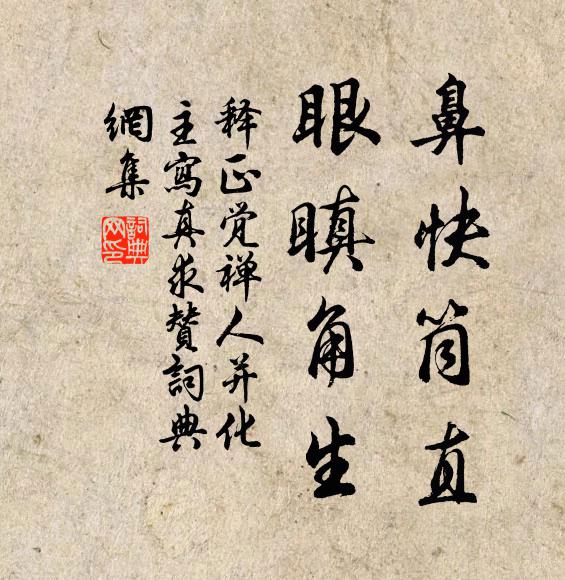 鼻快筒直
眼瞋角生
释正觉禅人并化
主寫真求赞詞典
網集
詞典网印